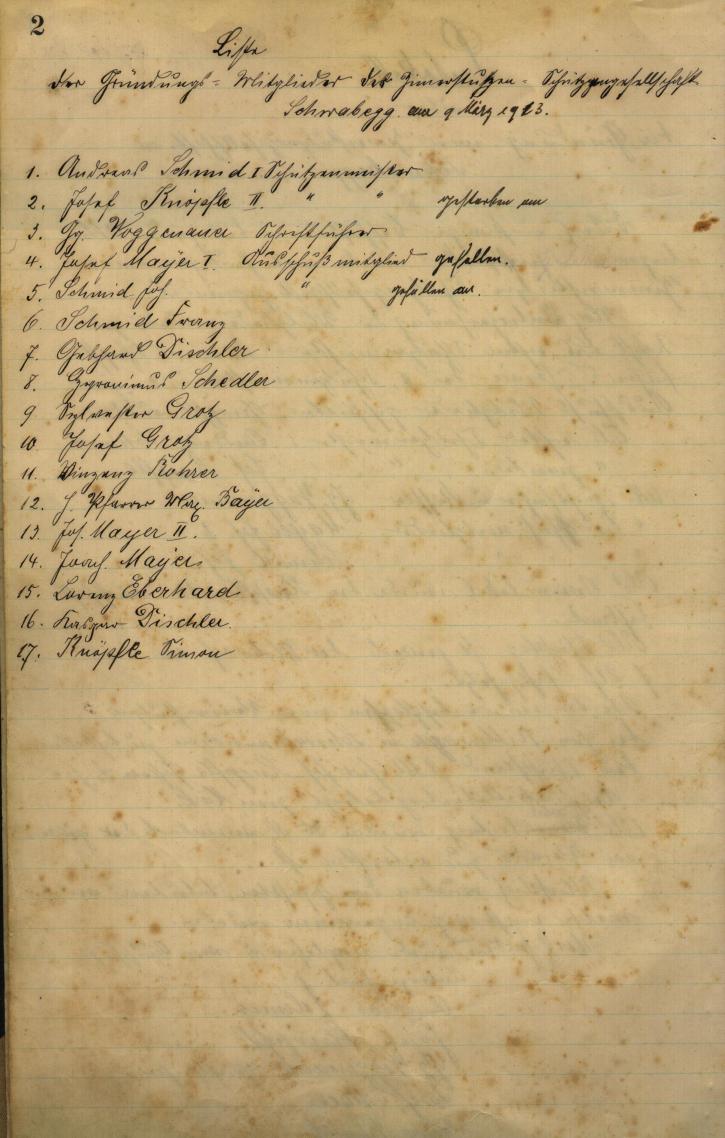 2
Liste
der Gründungs- Mitglieder des Zimerstutzen- Schützengesellschaft
Schwabegg am 9 März 1913.
1. Andreas Schmid I Schützenmeister
2. Josef Knöpfle II. " " gestorben am
3. Gg. Woggenauer Schriftführer
4. Josef Mayer I. Ausschußmitglied gefallen.
5. Schmid Joh. " gefallen am.
6. Schmid Franz
7. Gebhard Dischler
8. Schedler
9 Sylvester Grotz
10 Josef Grotz
11. Vinzenz Rohrer
12. H. Pfarrer Max. Bayer
13. Jos. Mayer II.
14. Joach. Mayer
15. Lorenz Eberhard
16. Kaspar Dischler.
17. Knöpfle Simon